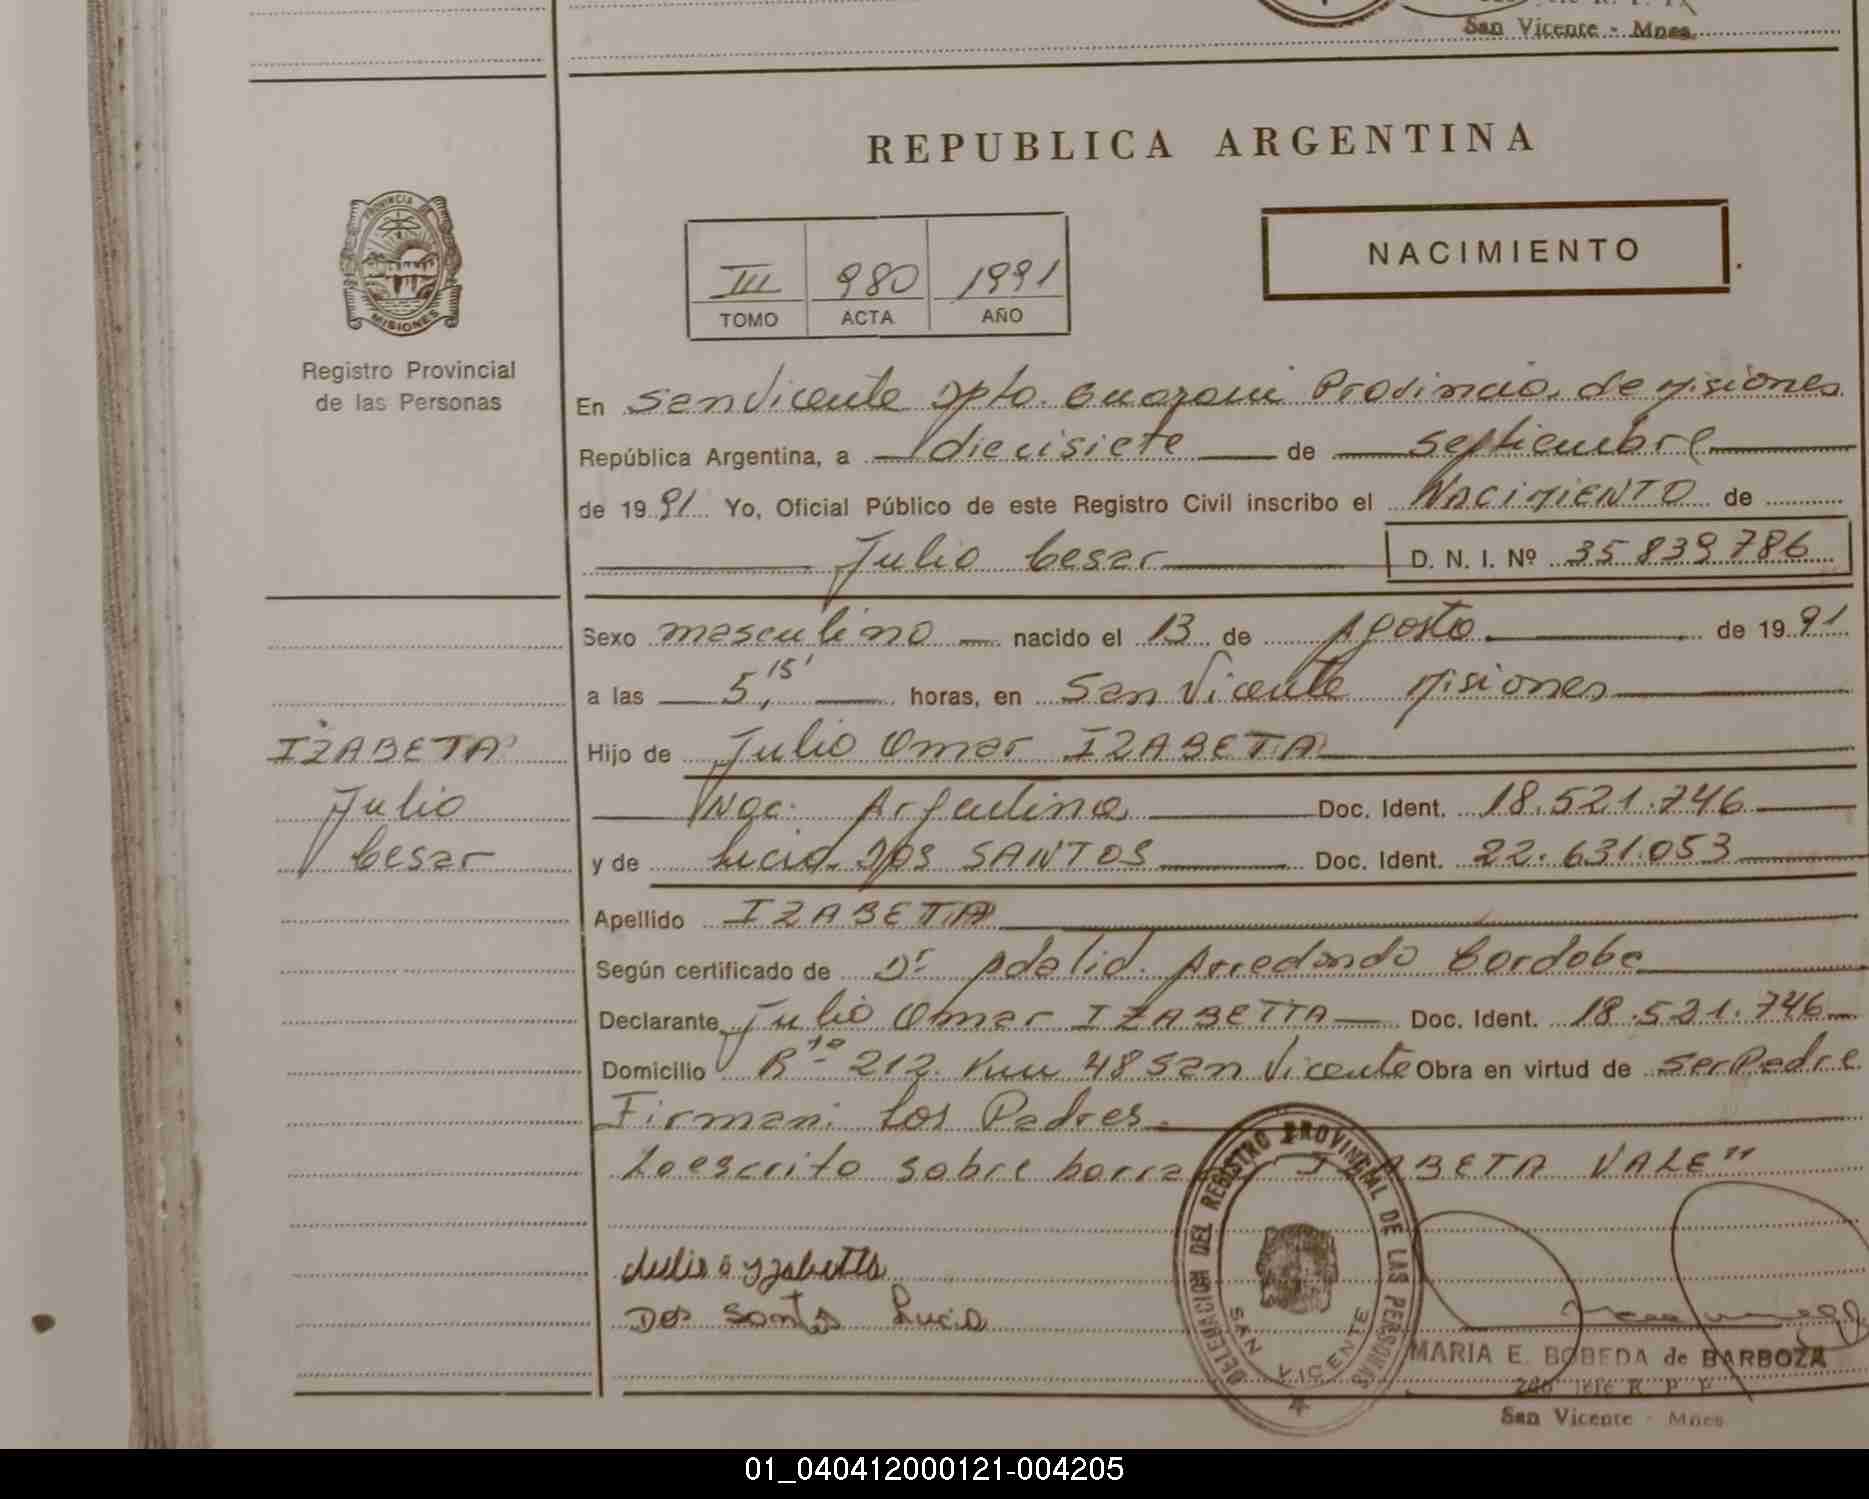 San Vicente - Mnes.
REPUBLICA ARGENTINA
PROVINCIA DE
MISIONES
Registro Provincial
de las Personas
III 980 1991
TOMO ACTA AÑO
NACIMIENTO
En San Vicente Dpto. Guarani Provincia de Misiones
República Argentina, a diecisiete de septiembre
de 1991 Yo, Oficial Público de este Registro Civil inscribo el NACIMIENTO de
Julio Cesar D. N. I. Nº 35.839.786
Sexo masculino nacido el 13 de Agosto de 1991
a las 5,15' horas, en San Vicente Misiones
IZABETA
Julio
Cesar
Hijo de Julio Omar IZABETA
Nac. Argentina Doc. Ident. 18.521.746
y de Lucia DOS SANTOS Doc. Ident. 22.631.053
Apellido IZABETA
Según certificado de Dr Adalid Arredondo Cordoba
Declarante Julio Omar IZABETTA Doc. Ident. 18.521.746
Domicilio 212 Km 48 San Vicente Obra en virtud de ser Padre
Firman: Los Padres
Lo escrito sobre IZABETA VALE"
Julio o yzabetta
Dos Santos Lucia
DELEGACION DEL REGISTRO PROVINCIAL DE LAS PERSONAS
SAN VICENTE
MARIA E. BOBEDA de BARBOZA
2do Jefe R. P. P.
San Vicente - Mnes
01_040412000121-004205